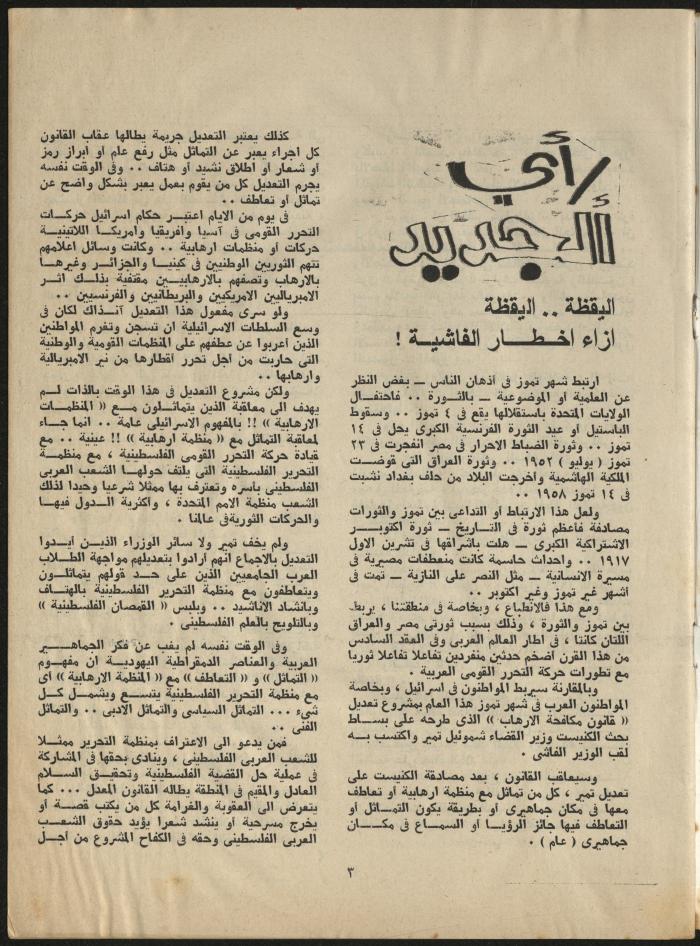 رأي
الجديد
اليقظة .. اليقظة
ازاء اخطار الفاشية !
ارتبط شهر تموز في أذهان الناس ــ بغض النظر
عن العلمية او الموضوعية ــ بالثورة .. فاحتفال
الولايات المتحدة باستقلالها يقع في ٤ تموز .. وسقوط
الباستيل او عيد الثورة الفرنسية الكبرى يحل في ١٤
تموز .. وثورة الضباط الاحرار في مصر انفجرت في ٢٣
تموز ( يوليو ) ١٩٥٢ .. وثورة العراق التي قوضت
الملكية الهاشمية واخرجت البلاد من حلف بغداد نشبت
في ١٤ تموز ١٩٥٨ ..
ولعل هذا الارتباط او التداعى بين تموز والثورات
مصادفة فأعظم ثورة في التاريخ ــ ثورة اكتوبر
الاشتراكية الكبرى ــ هلت باشراقها في تشرين الاول
١٩١٧ .. واحداث حاسمة كانت منعطفات مصيرية في
مسيرة الانسانية ــ مثل النصر على النازية ــ تمت في
أشهر غير تموز وغير اكتوبر ..
ومع هذا فالانطباع ، وبخاصة في منطقتنا ، يربط
بين تموز والثورة ، وذلك بسبب ثورتى مصر والعراق
اللتان كانتا ، في اطار العالم العربى وفى العقد السادس
من هذا القرن أضخم حدثين منفردين تفاعلا تفاعلا ثوريا
مع تطورات حركة التحرر القومى العربية .
وبالمقارنة سيربط المواطنون في اسرائيل ، وبخاصة
المواطنون العرب في شهر تموز هذا العام بمشروع تعديل
« قانون مكافحة الارهاب » الذى طرحه على بساط
بحث الكنيست وزير القضاء شموئيل تمير واكتسب به
لقب الوزير الفاشى .
وسيعاقب القانون ، بعد مصادقة الكنيست على
تعديل تمير ، كل من تماثل مع منظمة ارهابية أو تعاطف
معها في مكان جماهيرى أو بطريقة يكون التماثل أو
التعاطف فيها جائز الرؤيا أو السماع في مكان
جماهيرى ( عام ) .
كذلك يعتبر التعديل جريمة يطالها عقاب القانون
كل اجراء يعبر عن التماثل مثل رفع علم او ابراز رمز
أو شعار أو اطلاق نشيد او هتاف .. وفى الوقت نفسه
يجرم التعديل كل من يقوم بعمل يعبر بشكل واضح عن
تماثل أو تعاطف ..
في يوم من الايام اعتبر حكام اسرائيل حركات
التحرر القومى في آسيا وأفريقيا وأمريكا اللاتينية
حركات أو منظمات ارهابية .. وكانت وسائل اعلامهم
تتهم الثوريين الوطنيين في كينيا والجزائر وغيرها
بالارهاب وتصفهم بالارهابيين مقتفية بذلك اثر
الامبرياليين الامريكيين والبريطانيين والفرنسيين ..
ولو سرى مفعول هذا التعديل آنذاك لكان في
وسع السلطات الاسرائيلية ان تسجن وتغرم المواطنين
الذين أعربوا عن عطفهم على المنظمات القومية والوطنية
التى حاربت من أجل تحرر أقطارها من نير الامبريالية
وارهابها ..
ولكن مشروع التعديل في هذا الوقت بالذات لم
يهدف الى معاقبة الذين يتماثلون مع « المنظمات
الارهابية » !! بالمفهوم الاسرائيلى عامة .. انما جاء
لمعاقبة التماثل مع « منظمة ارهابية » !! عينية .. مع
قيادة حركة التحرر القومى الفلسطينية ، مع منظمة
التحرير الفلسطينية التى يلتف حولها الشعب العربى
الفلسطينى بأسره وتعترف بها ممثلا شرعيا وحيدا لذلك
الشعب منظمة الامم المتحدة ، وأكثرية الدول فيها
والحركات الثورية في عالمنا .
ولم يخف تمير ولا سائر الوزراء الذين ايدوا
التعديل بالاجماع أنهم أرادوا بتعديلهم مواجهة الطلاب
العرب الجامعيين الذين على حد قولهم يتماثلون
ويتعاطفون مع منظمة التحرير الفلسطينية بالهتاف
وبانشاد الاناشيد .. وبلبس « القمصان الفلسطينية »
وبالتلويح بالعلم الفلسطينى .
وفى الوقت نفسه لم يغب عن فكر الجماهير
العربية والعناصر الدمقراطية اليهودية ان مفهوم
« التماثل » و « التعاطف » مع « المنظمة الارهابية » أى
مع منظمة التحرير الفلسطينية يتسع ويشمل كل
شىء ... التماثل السياسى والتماثل الادبى .. والتماثل
الفنى ..
فمن يدعو الى الاعتراف بمنظمة التحرير ممثلا
للشعب العربى الفلسطينى ، وينادى بحقها في المشاركة
في عملية حل القضية الفلسطينية وتحقيق السلام
العادل والمقيم في المنطقة يطاله القانون المعدل ... كما
يتعرض الى العقوبة والغرامة كل من يكتب قصة أو
يخرج مسرحية أو ينشد شعرا يؤيد حقوق الشعب
العربى الفلسطينى وحقه في الكفاح المشروع من أجل
٣